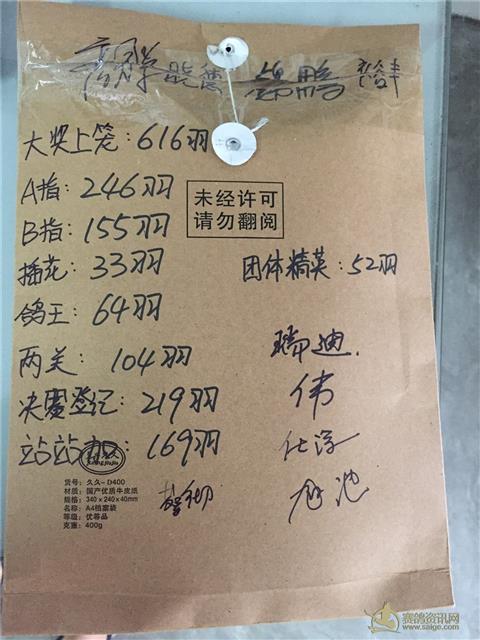 大奖上笼：616羽
A指：246羽
未经许可
请勿翻阅
B指：155羽
插花：33羽
团体精英：52羽
鸽王：64羽
两关：104羽
瑞迪.
决赛登记：219羽
伟
站站 169羽
货号：久久-D400
材质：国产优质牛皮纸
规格：340×240×40mm
名称：A4档案袋
等级：优等品
克重：400g
赛鸽资讯网
www.saige.com